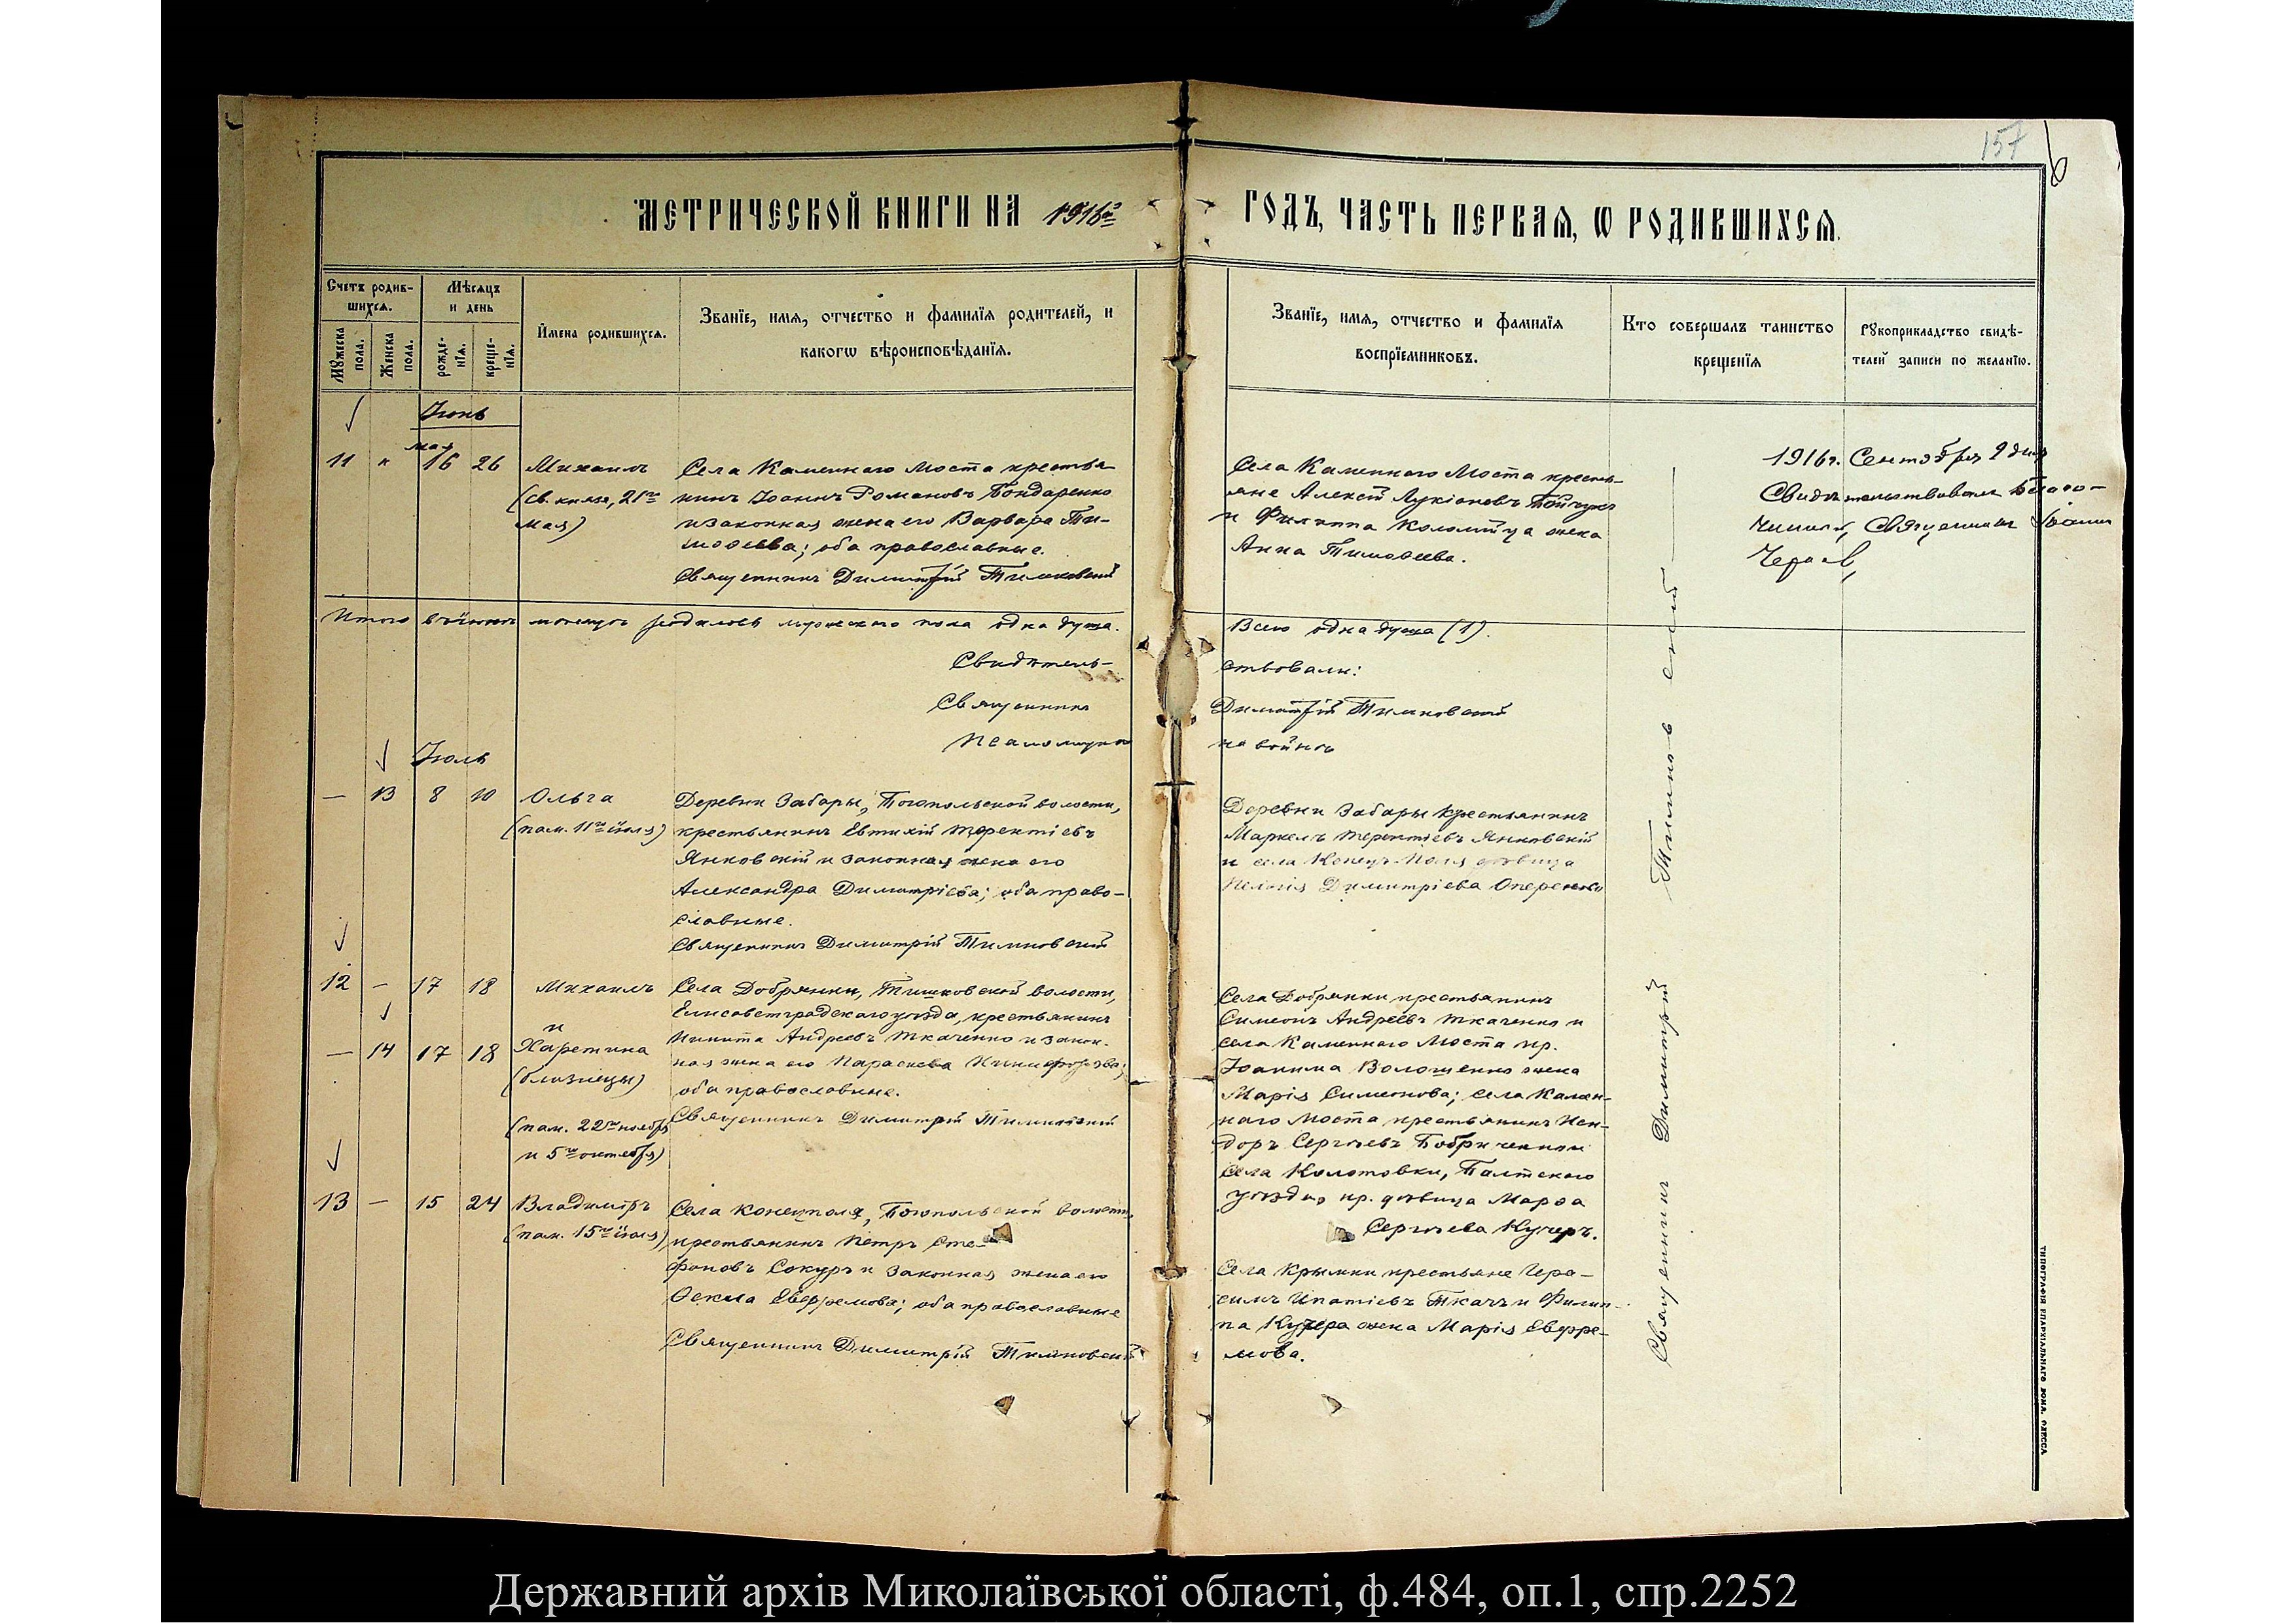 157
6
МЕТРИЧЕСКОЙ КНИГИ НА 1916й ГОДЪ, ЧАСТЬ ПЕРВАЯ, Ѡ РОДИВШИХСЯ.
Счетъ родив-
шихся.
Мѣсяцъ
и день
Мужеска
пола.
Женска
пола.
рожде-
нїя.
креще-
нїя.
Имена родившихся.
Званїе, имя, отчество и фамилїя родителей, и
какогѡ вѣроисповѣданїя.
Званїе, имя, отчество и фамилїя
воспрїемниковъ.
Кто совершалъ таинство
крещенїя
Рукоприкладство свидѣ-
телей записи по желанїю.
Іюнь
мая
11 " 16 26
Михаилъ
(св. князя, 21го
мая)
Села Каменнаго Моста крестья-
нинъ Іоаннъ Романовъ Бондаренко
и законная жена его Варвара Ти-
моѳеева; оба православные.
Священникъ Димитрій Тимковскій
Села Каменнаго Моста кресть-
яне Алексѣй Лукіановъ Бойчукъ
и Филиппа Коломійца жена
Анна Тимоѳеева.
1916г. Сентября 9 дня
Свидѣтельствовалъ Благо-
чинный, Священникъ Іоаннъ
Итого въ іюнѣ мѣсяцѣ родилось мужскаго пола одна душа.
Всего одна душа (1).
Свидѣтель-
ствовали:
Священникъ
Димитрій Тимковскій
Псаломщикъ
на войнѣ
Іюль
— 13 8 10
Ольга
(пам. 11го іюля)
Деревни Забары, Богопольской волости,
крестьянинъ Евтихій Терентіевъ
Янковскій и законная жена его
Александра Димитріева; оба право-
славные.
Священникъ Димитрій Тимковскій
Деревни Забары крестьянинъ
Маркелъ Терентіевъ Янковскій
и села Конецъ-Поля дѣвица
Димитріева
12 — 17 18
Михаилъ
и
— 14 17 18
Харитина
(близнецы)
(пам. 22го ноября
и 5го октября)
Села Добрянки, Тишковской волости,
Елисаветградскаго уѣзда, крестьянинъ
Никита Андреевъ Ткаченко и закон-
ная жена его Параскева Никифорова;
оба православные.
Священникъ Димитрій Тимковскій
Села Добрянки крестьянинъ
Симеонъ Андреевъ Ткаченко и
села Каменнаго Моста кр.
Іоакима Волошенко жена
Марія Симеонова; села Камен-
наго Моста крестьянинъ Иси-
доръ Сергѣевъ
села Колотовки, Балтскаго
уѣзда, кр. дѣвица Марѳа
Сергѣева Кучеръ.
13 — 15 24
Владиміръ
(пам. 15го іюля)
Села Конецполя, Богопольской волости,
крестьянинъ Петръ Сте-
фановъ Сокуръ и законная жена его
Ѳекла Евфремова; оба православные
Священникъ Димитрій Тимковскій
Села Крымки крестьяне Гера-
симъ Ипатіевъ Ткачъ и Филип-
па Кучера жена Марія Евфре-
мова.
Священникъ Димитрій Тимковскій
ТИПОГРАФІЯ ЕПАРХІАЛЬНАГО ДОМА, ОДЕССА
Державний архів Миколаївської області, ф.484, оп.1, спр.2252